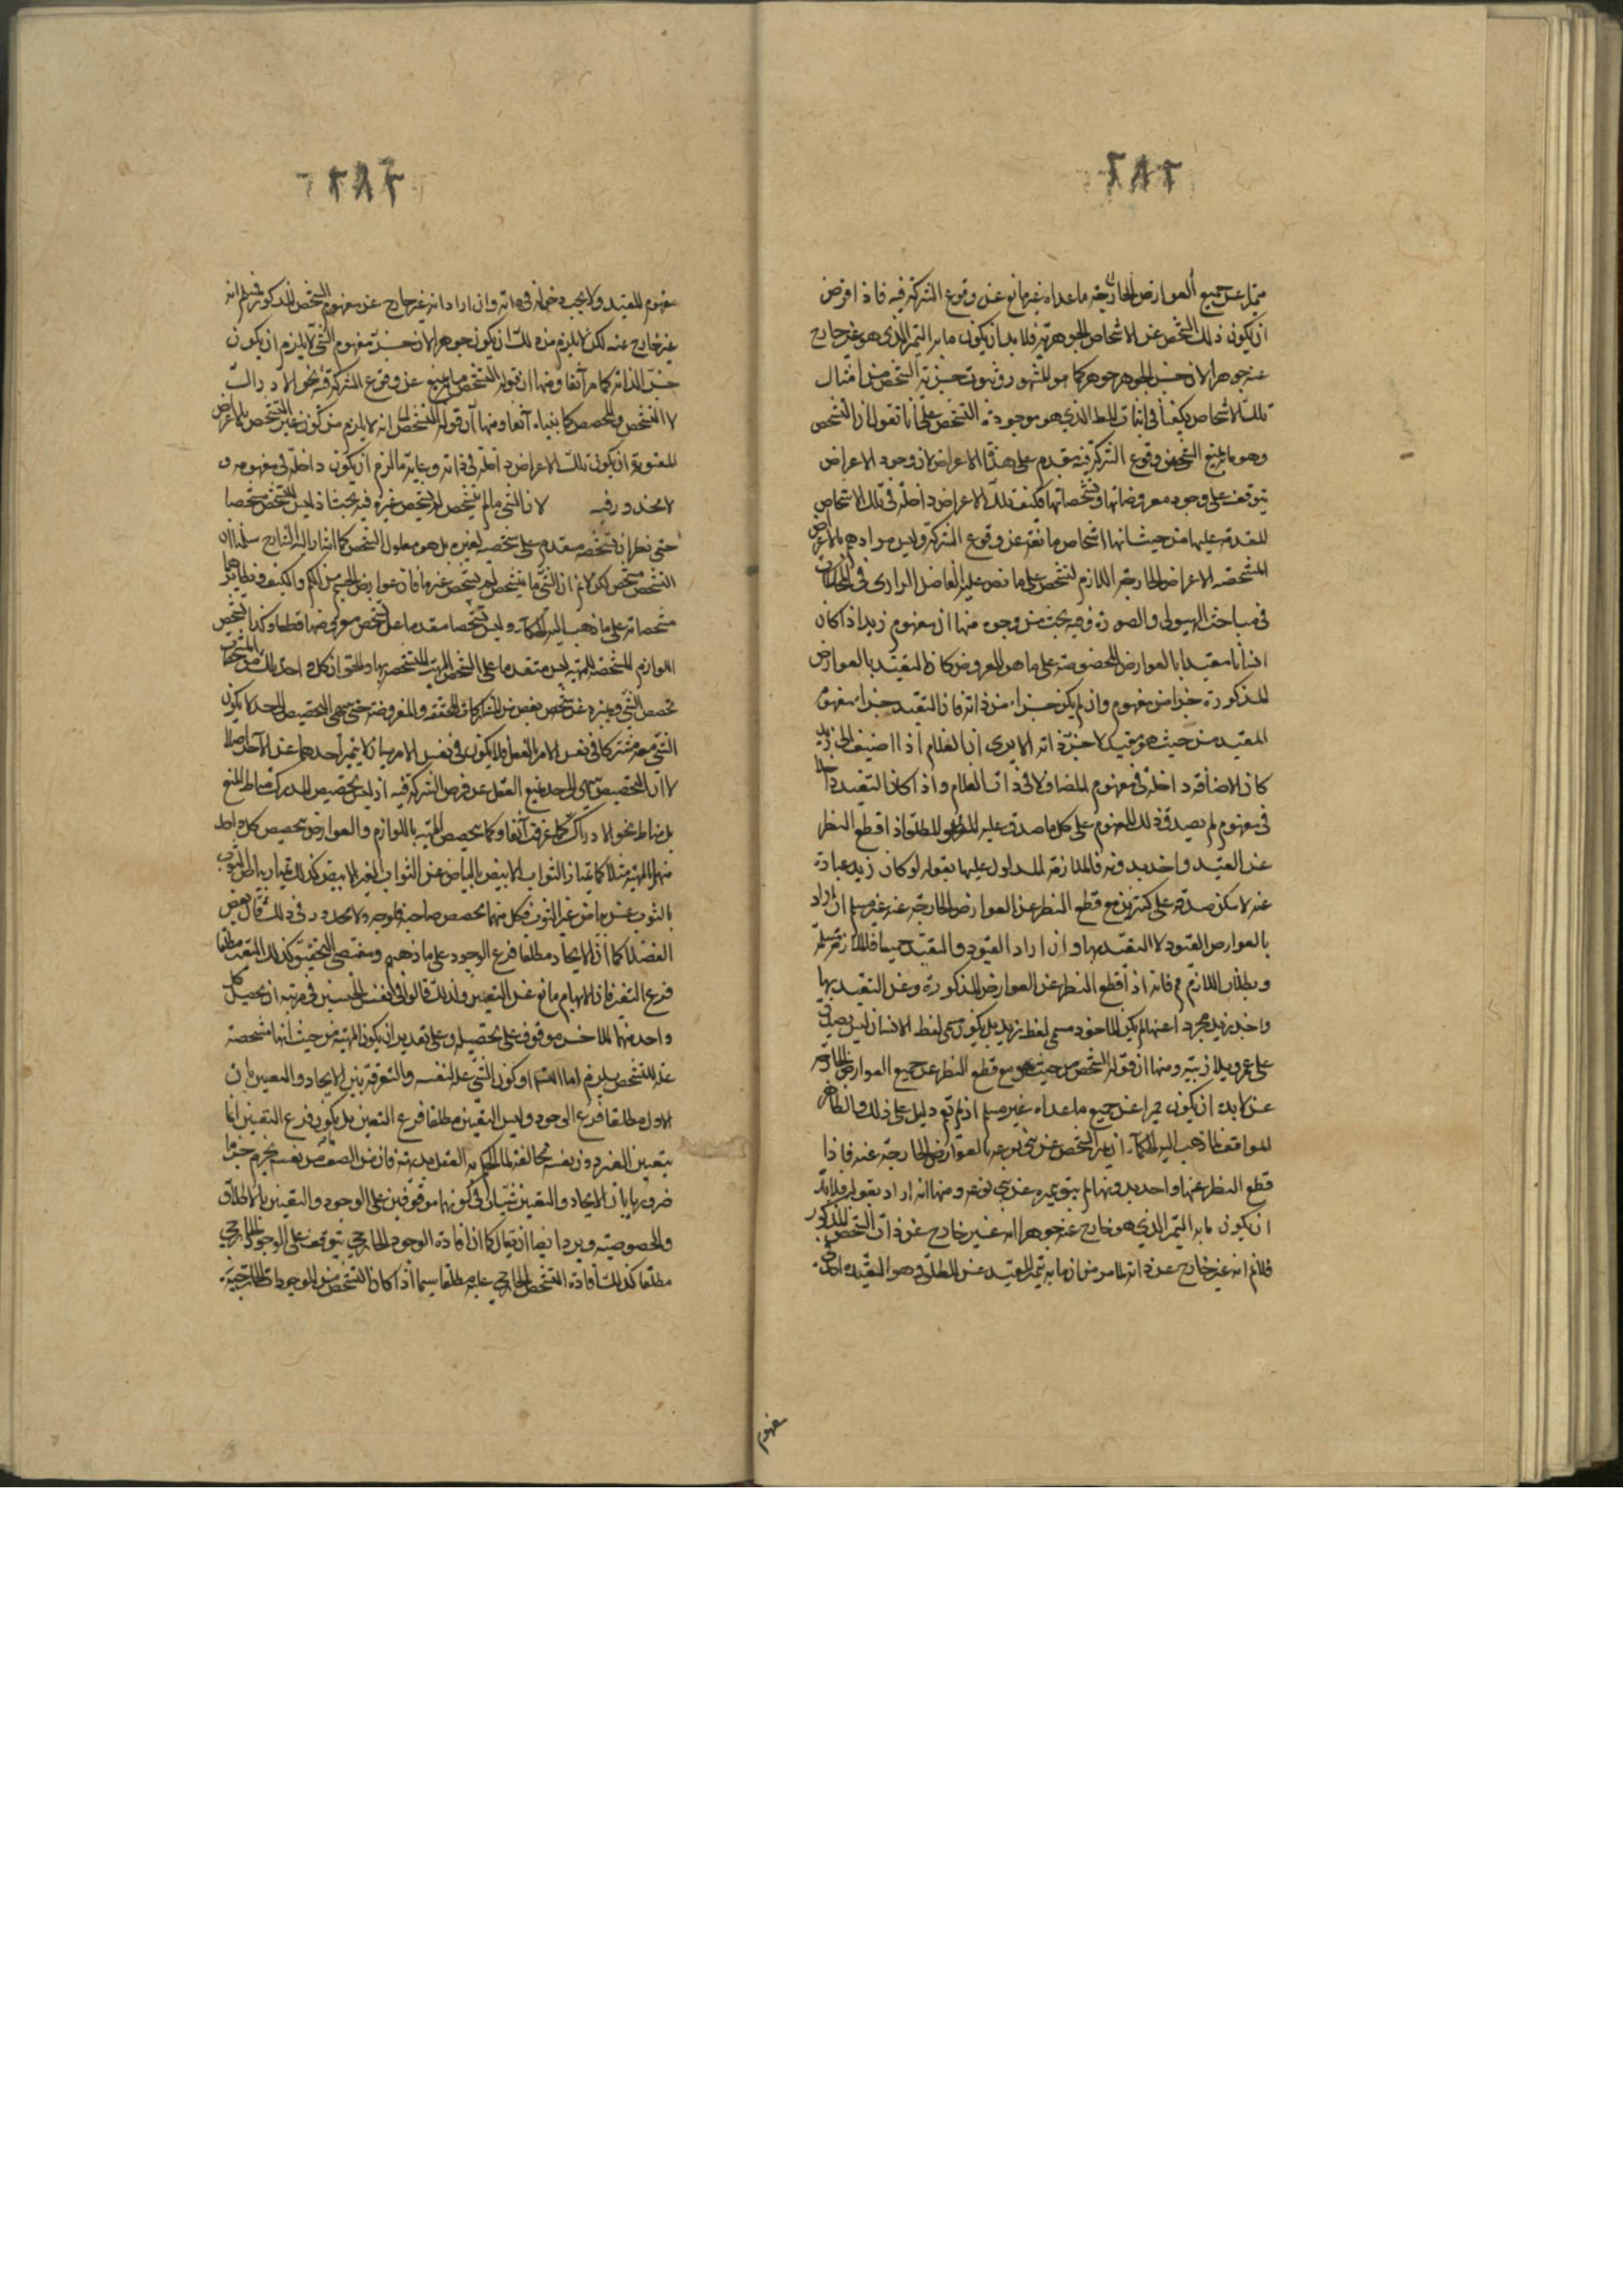 ٢٨٢
متميزا عن جميع العوارض الخارجية ما عداه غير مانع عن وقوع الشركة فيه فاذا فرض
ان يكون ذلك الشخص عن الاشخاص الجوهرية فلا بد ان يكون ما به التميز الذي هو غير خارج
عنه جوهرا لان جنس الجوهر جوهر كما هو المشهور وثبوت جزئية الشخص من امثال
تلك الاشخاص يكفينا في اثبات المط الذي هو موجودية التشخص على انا نقول ان الشخص
وهو ما يمنع عن وقوع الشركة فيه مقدم على هذه الاعراض لان وجود الاعراض
يتوقف على وجود معروضاتها وتشخصاتها فكيف تلك الاعراض داخلة في تلك الاشخاص
المقدمة عليها من حيث انها اشخاص مانعة عن وقوع الشركة وليس مرادهم بالاعراض
المشخصة الاعراض الخارجية اللازم لتشخص على ما نص عليه الفاضل الرازي في المحاكمات
في مباحث الهيولى والصورة وفيه بحث من وجوه منها ان مفهوم زيد اذا كان
انسانا مقيدا بالعوارض المخصوصة على ما هو المفروض كان المقيد بالعوارض
المذكورة جزء من مفهوم وان لم يكن جزء من ذاته فان التقيد جزء مفهوم
المقيد من حيث هو مقيد لا جزء ذاته الا يرى ان الغلام اذا اضيف الى زيد
كان الاضافة داخلة في مفهوم المضاف لا في ذات الغلام واذا كان التقييد داخلا
في مفهوم لم يصدق ذلك المفهوم على كل ما صدق عليه المطلق اذا قطع النظر
عن القيد واخذ بدونه فالملازمة المدلول عليها بقوله لو كان زيد عبارة
عنه لامكن صدقه على كثيرين مع قطع النظر عن العوارض الخارجية عنه غير مسلم ان اراد
بالعوارض القيود لا التقيد بها وان اراد القيود والتقيد جميعا فالملازمة مسلمة
وبطلان اللازم مم فانه اذا قطع النظر عن العوارض المذكورة وعن التقييد بها
واخذ زيد مجردا عنها لم يكن الماخوذ مسمى لفظ زيد بل يكون مسمى لفظ الانسان
على عمرو بلا ريبة ومنها ان قوله الشخص من حيث هو مع قطع النظر عن جميع العوارض الخارجية
عن لابد ان يكون مميزا عن جميع ما عداه غير مسلم اذ لم يقم دليل على ذلك والظاهر
الموافق لما ذهب اليه الحكماء ان تميز الشخص عن بني نوعه بالعوارض الخارجة عنه فاذا
قطع النظر عنها واخذ بدونها لم يبق تميزه عن بني نوعه ومنها انه اراد بقوله فلا بد
ان يكون ما به التميز الذي هو خارج عنه جوهرا انه غير خارج عن ذات الشخص المذكور
فلانم انه غير خارج عن ذاته لما مر من ان ما به تميز المقيد عن المطلق هو التقييد
مفهوم
٢٨٣
مفهوم المقيد ولا يجب دخوله في ذاته وان اراد انه غير خارج عن مفهوم الشخص المذكور فمسلم انه
غير خارج عنه لكن لا يلزم من ذلك ان يكون جوهرا لان جزء مفهوم الشيء لا يلزم ان يكون
جزء الذاته كما مر آنفا ومنها ان قوله الشخص ما يمنع عن وقوع الشركة فيه نحو الادراك
لا التشخص والمخصص كما بيناه آنفا ومنها ان قوله انه لا يلزم من كون غير التشخص بالاعراض
المتقومة ان يكون تلك الاعراض داخلة في ذاته وغاية ما لزم ان يكون داخلة في مفهومه و
لا محذور فيه لان الشيء ما لم يتشخص لم يشخص غيره فيه بحث اذ ليس التشخص مشخصا
حتى نظر ان تشخصه مقدم على شخصية لغيره بل هو معلول الشخص كما اشار اليه الشارح سلمنا ان
التشخص مشخص لكن لانم ان الشيء ما لم يتشخص لم يشخص غيره فان عوارض الجسم من الكم والكيف ونظائرهما
مشخصاته على ما ذهب اليه الحكماء وليس تشخصها مقدما على تشخص معروضها قطعا وكذا تشخص
اللوازم المشخصة للمهية ليس متقدما على الشخص المهية المتشخصة بها والحق ان كل واحد
تخصص الشيء ويميزه عن شخص بعض من المشاركات المحققة والمفروضة حتى ينتهي التخصيص الى حد لا يكون
الشيء معه مشتركا في نفس الامر بالفعل فلا يكون في نفس الامر شيئان لا يتميز احدهما عن الآخر اصلا
لا ان التخصيص ينتهي الى حد يمنع العقل عن فرض الشركة فيه اذ ليس تخصيص المدرك مناط المنع
بل مناط نحو الادراك كما عرفت آنفا وكما يخصص المهية باللوازم والعوارض يخصص كل واحد
منها المهية مثلا كما يمتاز الثوب الابيض بالبياض عن الثواب الغير الابيض كذلك يمتاز بياض الثوب
بالثوب عن بياض غير الثوب فكل منهما يخصص صاحبه بوجه ولا محذور في ذلك قال بعض
الفضلاء كما ان الايجاد مطلقا فرع الوجود على ما ذهبهم ومقتضى التحقيق كذلك التعين مطلقا
فرع التعين فان الابهام مانع عن التعيين ولذلك قالوا في نفس الجنسين في مرتبة ان تحصيل كل
واحد منهما للاخر موقوف على تحصيله وعلى تقدير ان يكون المهية من حيث انها متشخصة
علة للتشخص يلزم اما التسلسل او كون الشيء علة لنفسه والتفرقة بين الايجاد والتعيين بان
الاول مطلقا فرع الوجود وليس التعين مطلقا فرع التعين بل يكون فرع التعين انما
يتعين الفرد دون نفسه مخالفة لما يحكم به العقل بديهة فان من انصف من نفسه يجزم جزما
ضروريا بان الايجاد والتعيين سيان في كونهما موقوفين على الوجود والتعين بالاطلاق
والخصوصية ويرد ايضا ان يقال كما ان افادة الوجود الخارجي يتوقف على الوجود الخارجي
مطلقا كذلك افادة التشخص الخارجي عليه مطلقا سيما اذا كان التشخص من الموجودات الخارجية